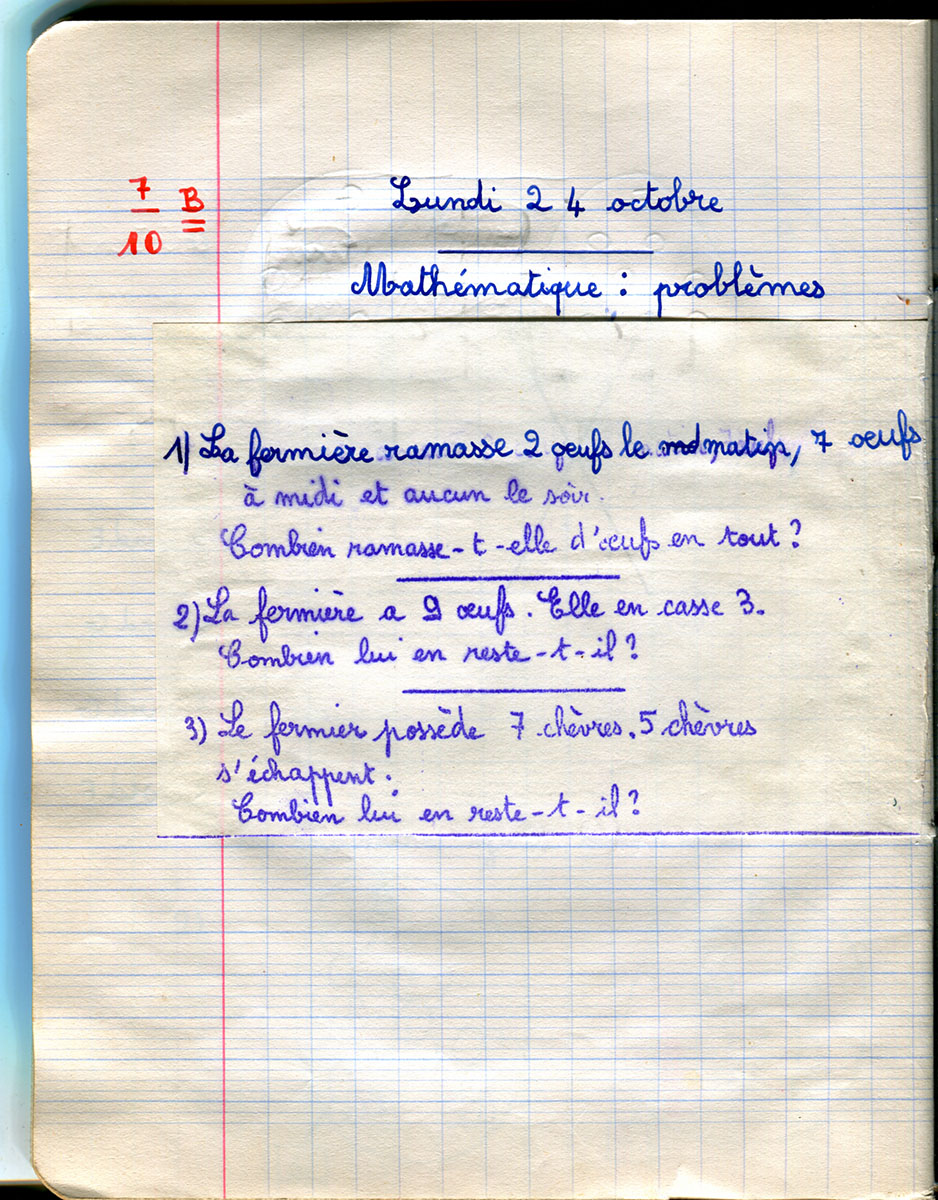 7
10
B
Lundi 24 octobre
Mathématique : problèmes
1) La fermière ramasse 2 oeufs le matin, 7 oeufs
à midi et aucun le soir.
Combien ramasse-t-elle d'oeufs en tout ?
2) La fermière a 9 oeufs. Elle en casse 3.
Combien lui en reste-t-il ?
3) Le fermier possède 7 chèvres. 5 chèvres
s'échappent.
Combien lui en reste-t-il ?